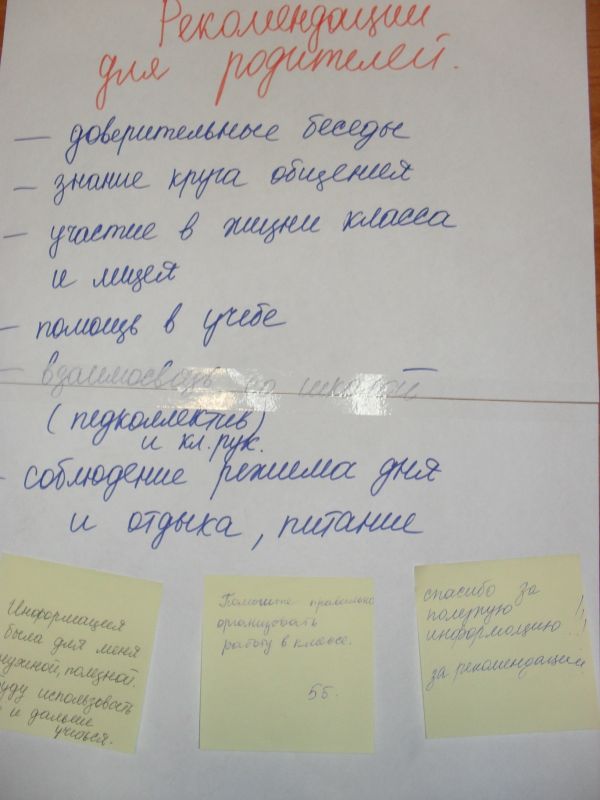 Рекомендации
для родителей.
– доверительные беседы
– знание круга общения
– участие в жизни класса
и лицея
– помощь в учебе
– взаимосвязь со школой
(педколлектив)
и кл. рук.
– соблюдение режима дня
и отдыха, питание
Информация
была для меня
нужной, полезной.
Буду использовать
и дальше
учиться.
Помогите правильно
организовать
работу в классе.
5б.
спасибо за
полезную
информацию!!
за рекомендации